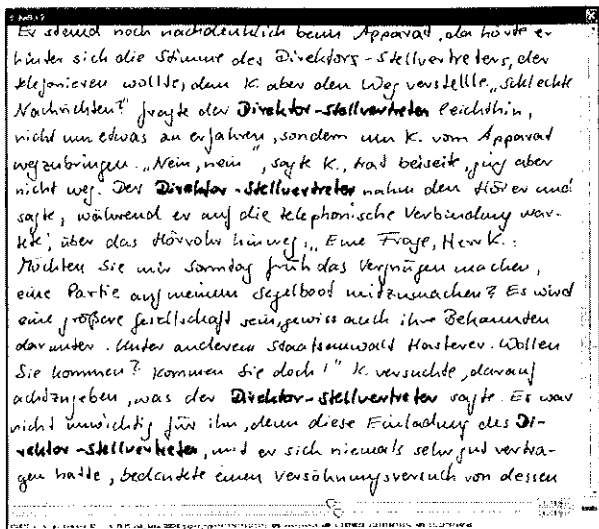 Er stand noch nachdenklich beim Apparat, da hörte er
hinter sich die Stimme des Direktors-Stellvertreters, der
telefonieren wollte, dem K. aber den Weg verstellte. „Schlechte
Nachrichten?" fragte der Direktor-Stellvertreter leichthin,
nicht um etwas zu erfahren, sondern um K. vom Apparat
wegzubringen. „Nein, nein", sagte K., trat beiseite, ging aber
nicht weg. Der Direktor-Stellvertreter nahm den Hörer und
sagte, während er auf die telephonische Verbindung war-
tete, über das Hörrohr hinweg: „Eine Frage, Herr K.:
Möchten Sie mir Sonntag früh das Vergnügen machen,
eine Partie auf meinem Segelboot mitzumachen? Es wird
eine größere Gesellschaft sein, gewiss auch ihre Bekannten
darunter. Unter anderem Staatsanwalt Hasterer. Wollen
Sie kommen? Kommen Sie doch!" K. versuchte, darauf
achtzugeben, was der Direktor-Stellvertreter sagte. Es war
nicht unwichtig für ihn, denn diese Einladung des Di-
rektor-Stellvertreter, mit er sich niemals sehr gut vertra-
gen hatte, bedeutete einen Versöhnungsversuch von dessen